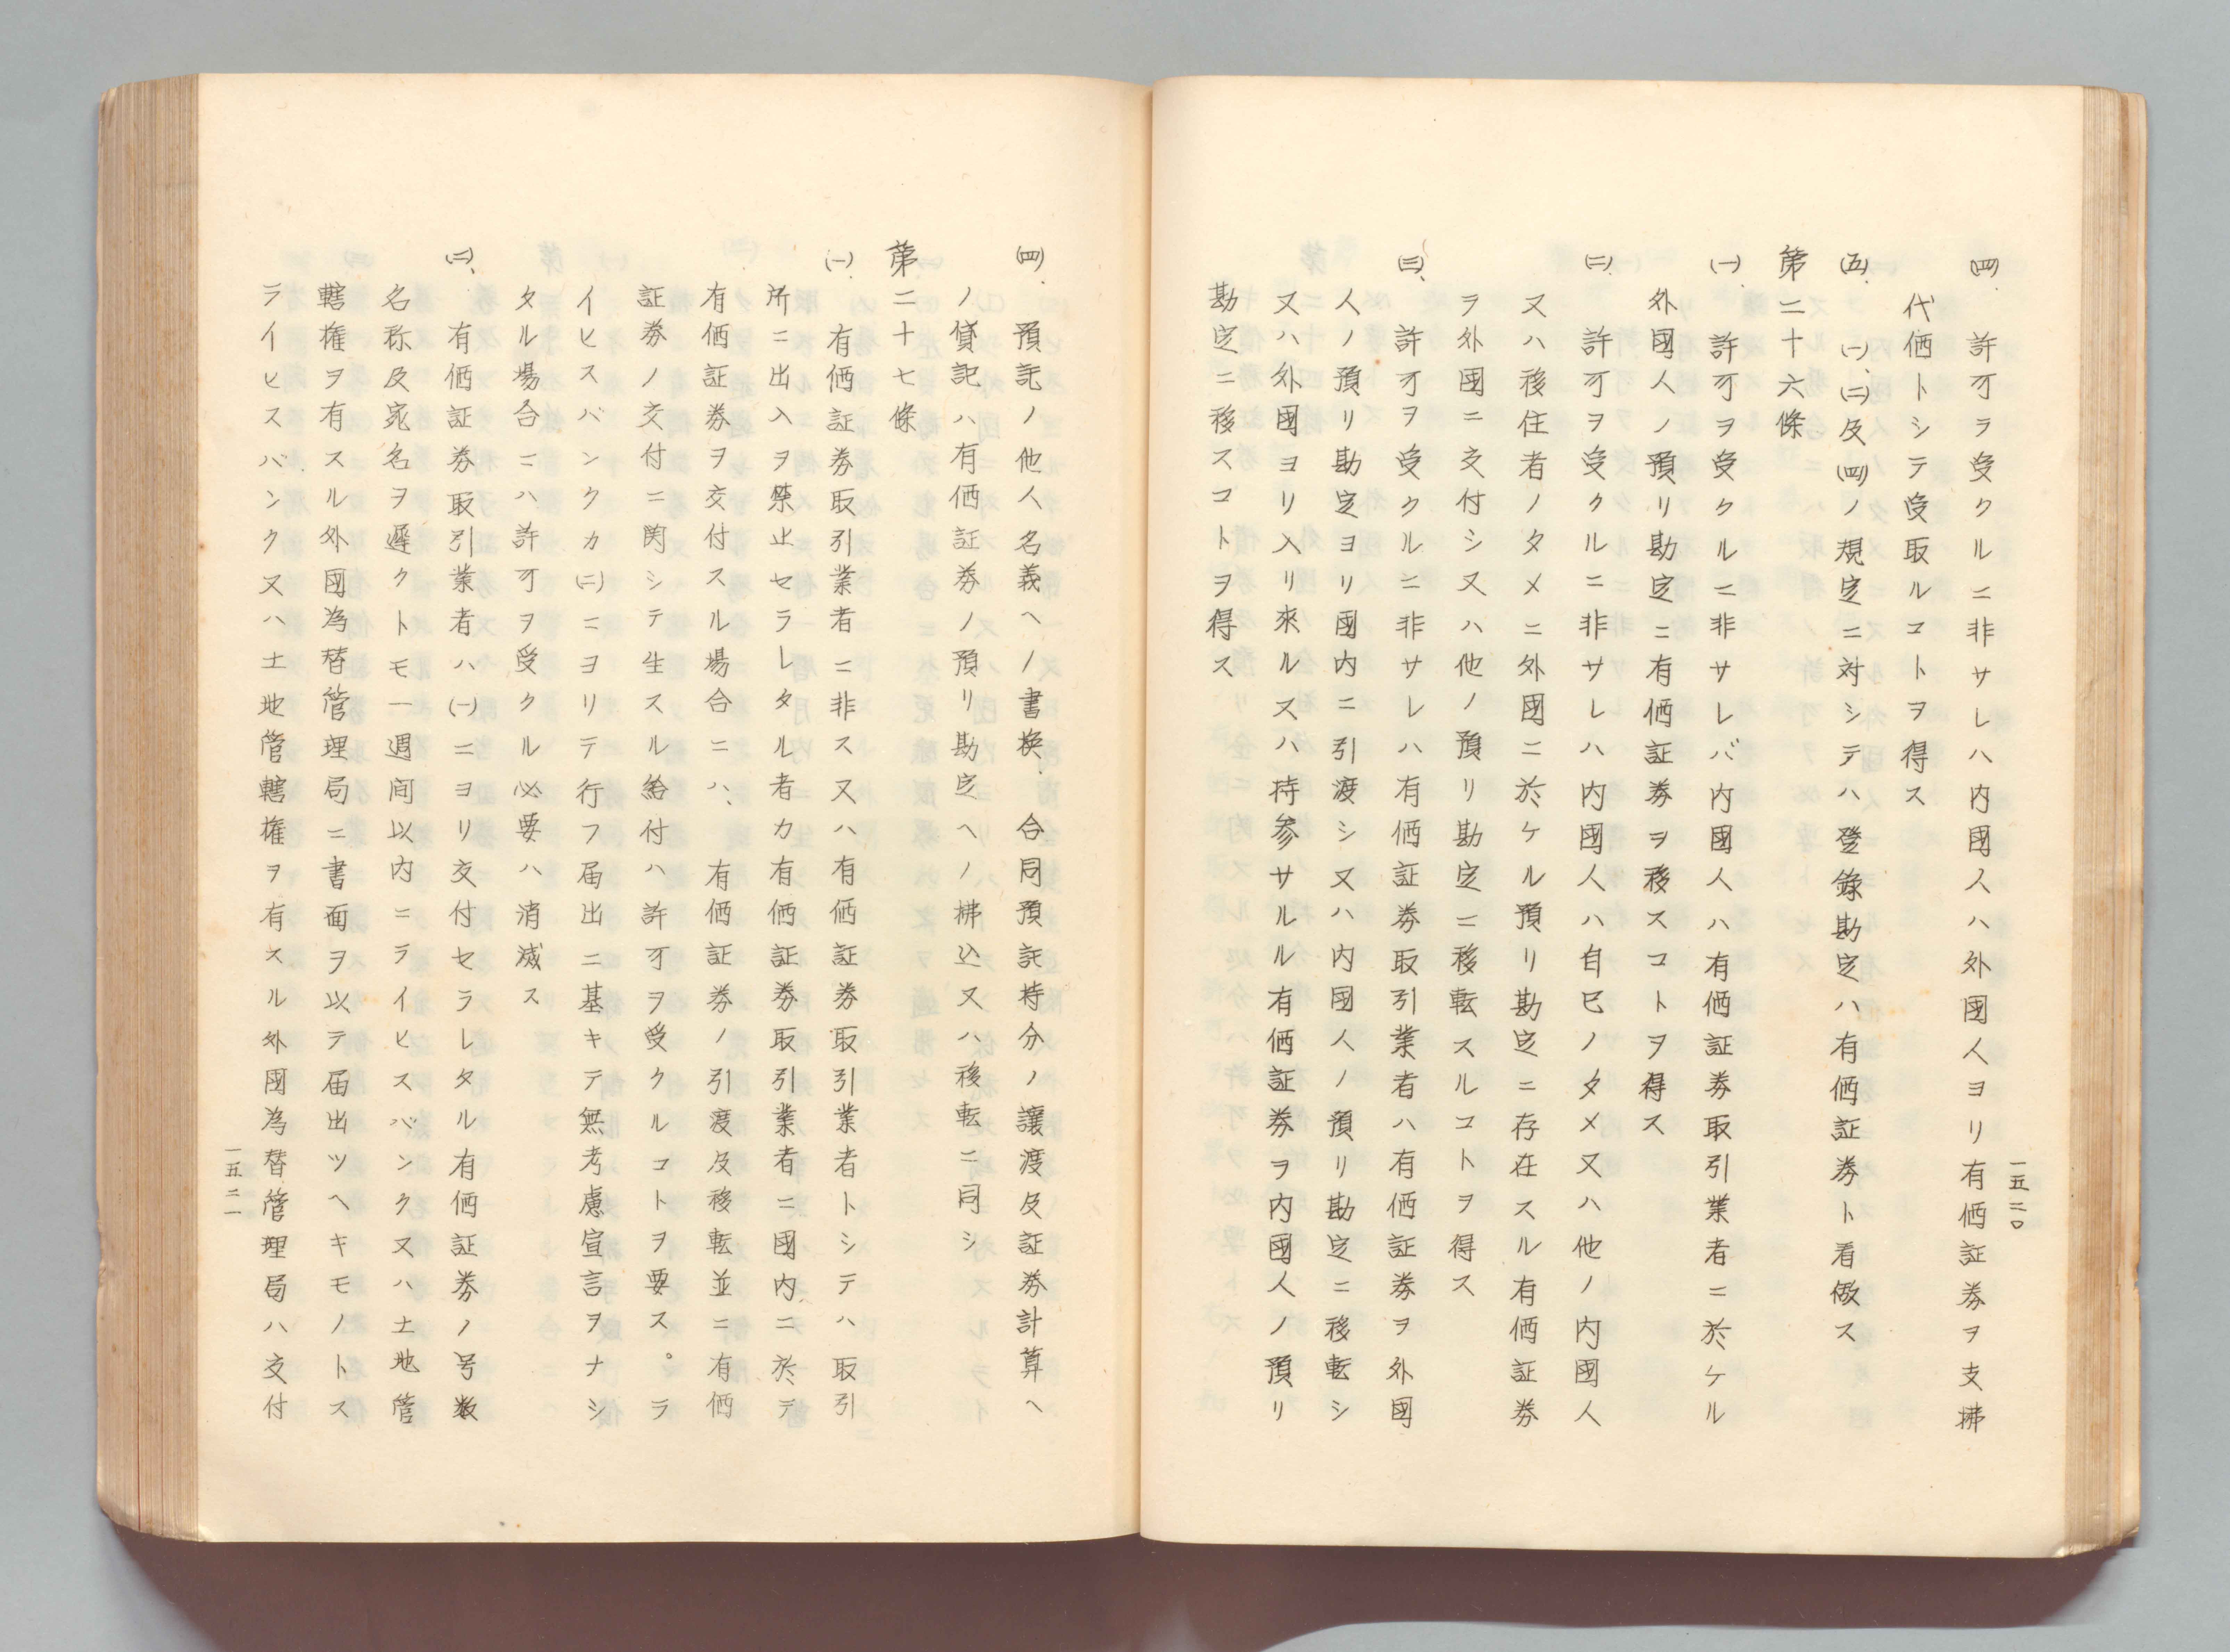 一五二〇
㈣、許可ヲ受クルニ非サレハ内國人ハ外國人ヨリ有価証券ヲ支拂
代価トシテ受取ルコトヲ得ス
㈤、㈠、㈡及㈣ノ規定ニ対シテハ登錄勘定ハ有価証券ト看做ス
第二十六條
㈠、許可ヲ受クルニ非サレバ内國人ハ有価証券取引業者ニ於ケル
外國人ノ預リ勘定ニ有価証券ヲ移スコトヲ得ス
㈡、許可ヲ受クルニ非サレハ内國人ハ自己ノタメ又ハ他ノ内國人
又ハ移住者ノタメニ外國ニ於ケル預リ勘定ニ存在スル有価証券
ヲ外國ニ交付シ又ハ他ノ預リ勘定ニ移転スルコトヲ得ス
㈢、許可ヲ受クルニ非サレハ有価証券取引業者ハ有価証券ヲ外國
人ノ預リ勘定ヨリ國内ニ引渡シ又ハ内國人ノ預リ勘定ニ移転シ
又ハ外國ヨリ入リ來ル又ハ持参サルル有価証券ヲ内國人ノ預リ
勘定ニ移スコトヲ得ス
㈣、預託ノ他人名義ヘノ書換、合同預託持分ノ讓渡及証券計算ヘ
ノ貸記ハ有価証券ノ預リ勘定ヘノ拂込又ハ移転ニ同シ
第二十七條
㈠、有価証券取引業者ニ非ス又ハ有価証券取引業者トシテハ取引
所ニ出入ヲ禁止セラレタル者カ有価証券取引業者ニ國内ニ於テ
有価証券ヲ交付スル場合ニハ、有価証券ノ引渡及移転並ニ有価
証券ノ交付ニ関シテ生スル給付ハ許可ヲ受クルコトヲ要ス。ラ
イヒスバンクカ㈡ニヨリテ行フ届出ニ基キテ無考慮宣言ヲナシ
タル場合ニハ許可ヲ受クル必要ハ消滅ス
㈡、有価証券取引業者ハ㈠ニヨリ交付セラレタル有価証券ノ号数
名称及宛名ヲ遲クトモ一週间以内ニライヒスバンク又ハ土地管
轄権ヲ有スル外國為替管理局ニ書面ヲ以テ届出ツヘキモノトス
ライヒスバンク又ハ土地管轄権ヲ有スル外國為替管理局ハ交付
一五二一